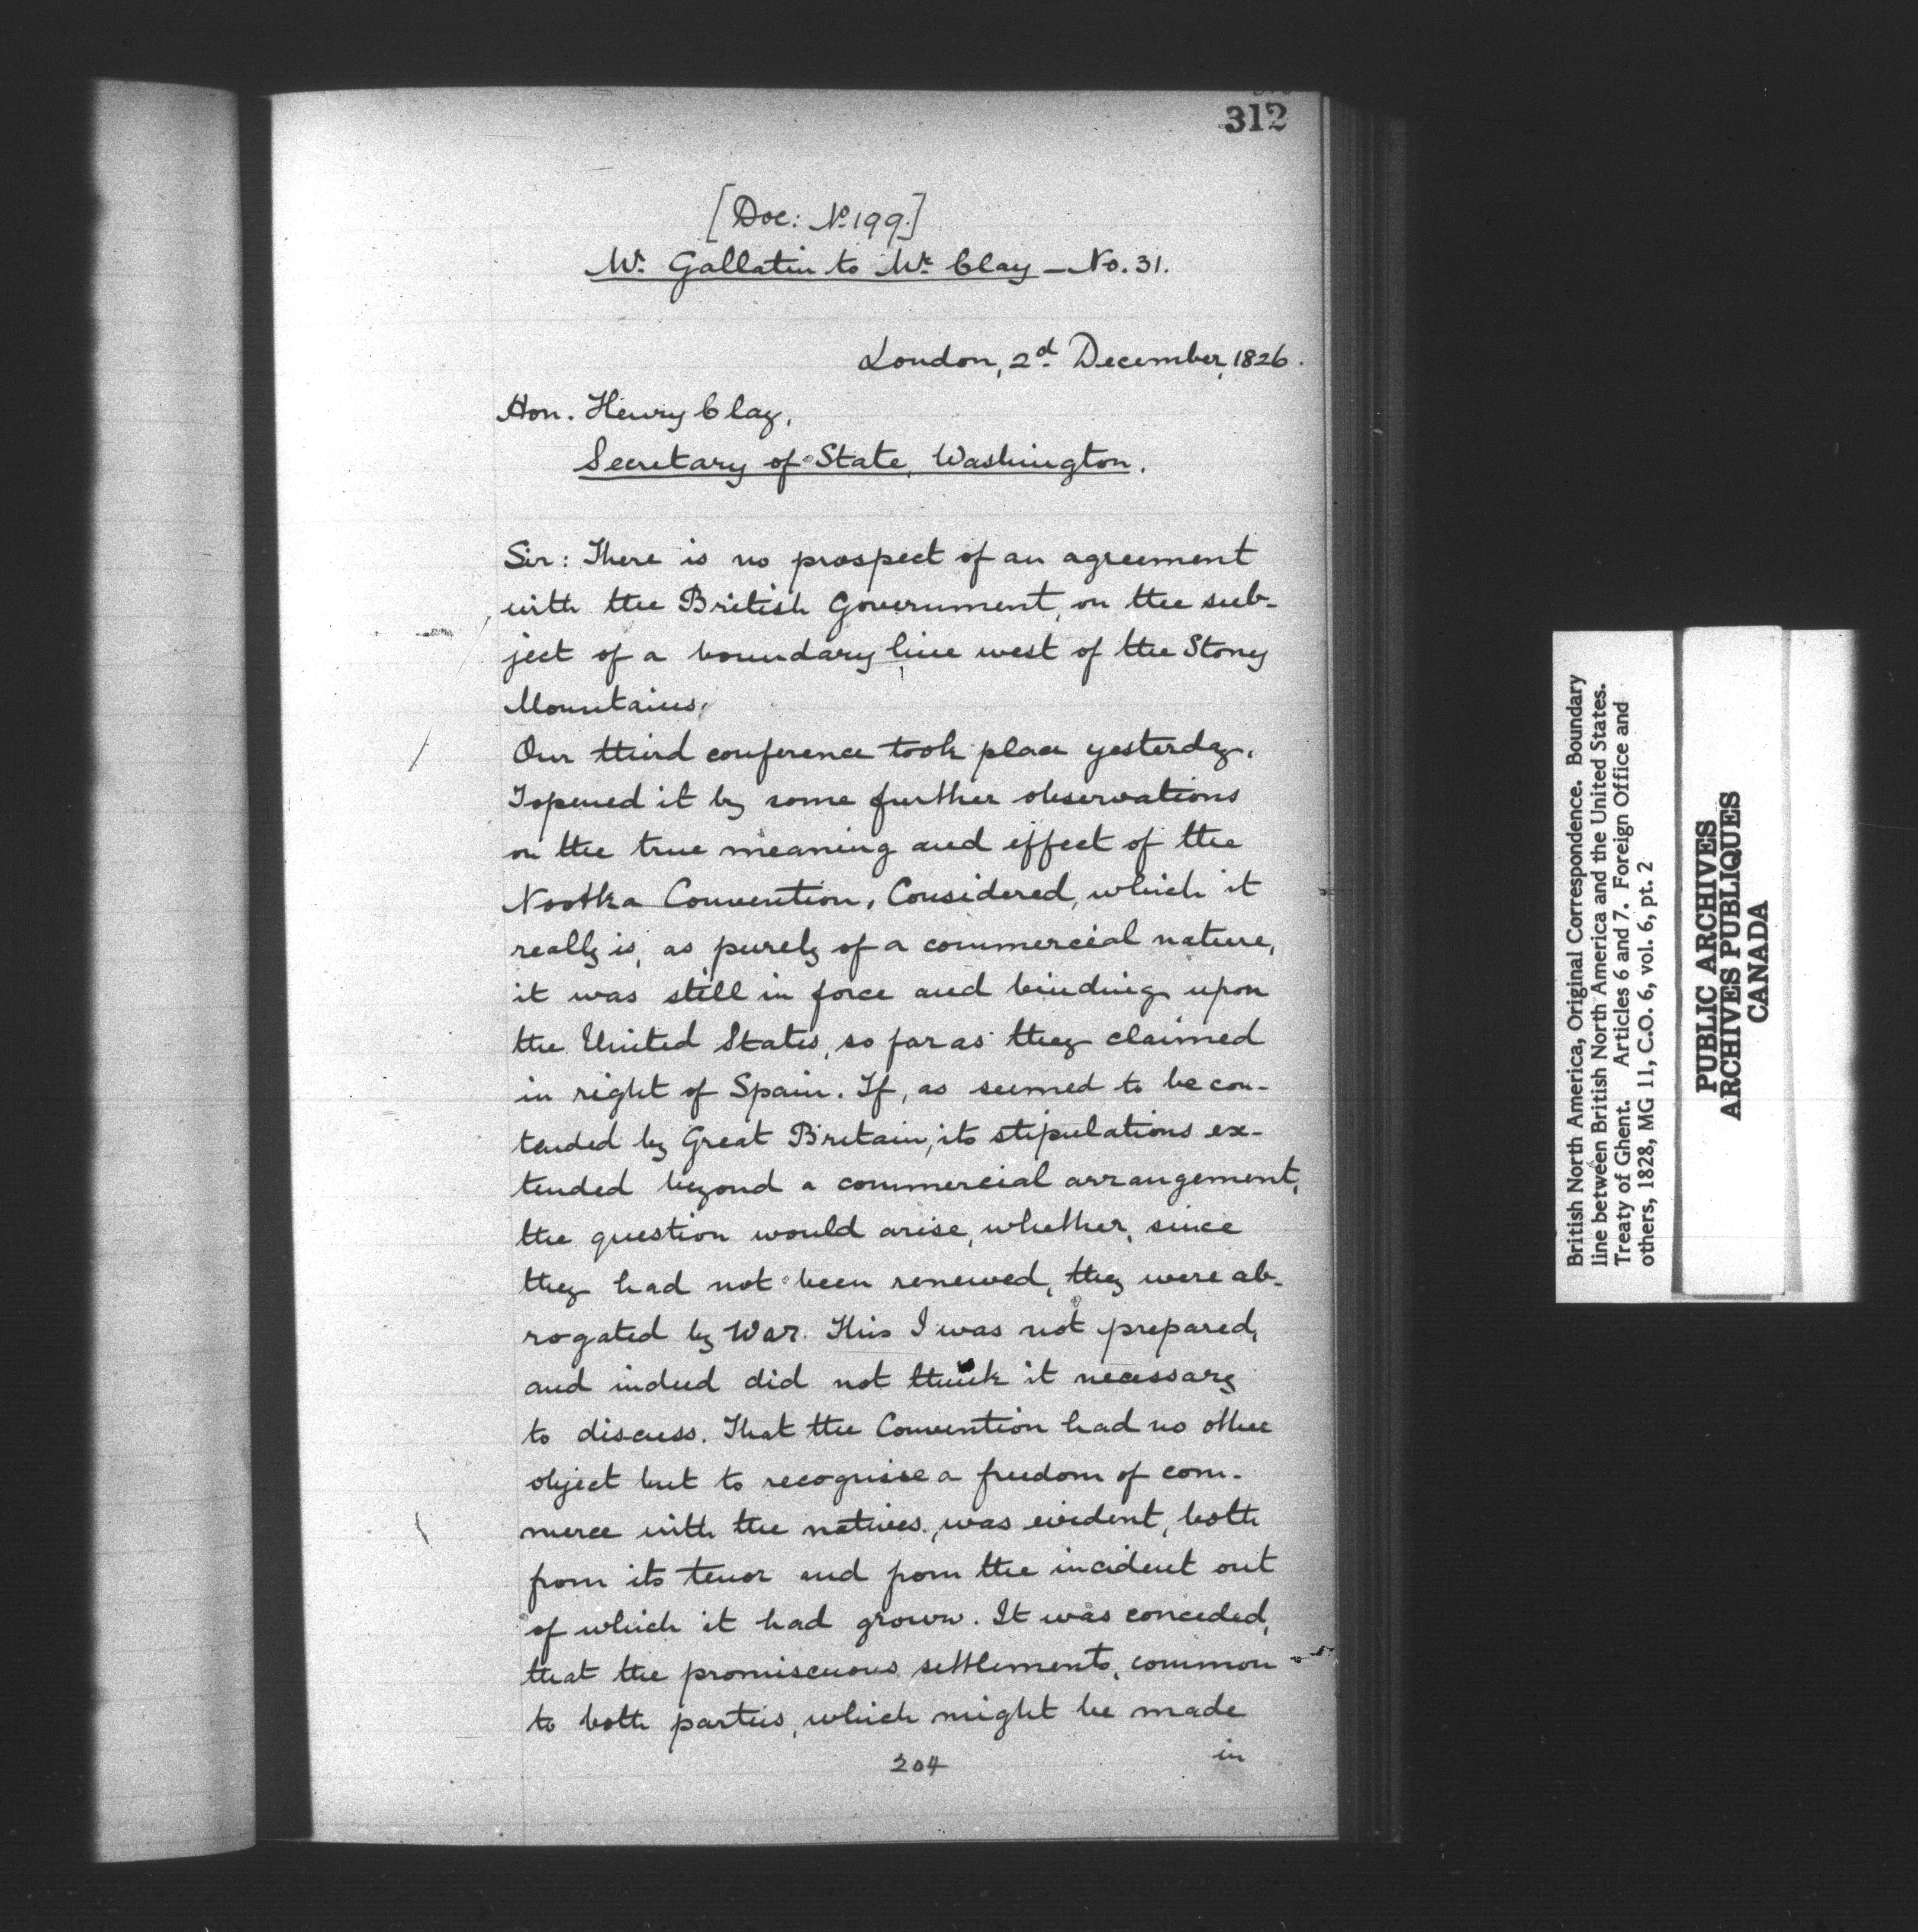 312
[Doc: No. 199.]
Mr. Gallatin to Mr. Clay — No. 31.
London, 2d. December, 1826.
Hon. Henry Clay,
Secretary of State, Washington.
Sir: There is no prospect of an agreement
with the British Government, on the sub-
ject of a boundary line west of the Stony
Mountains.
Our third conference took place yesterday.
I opened it by some further observations
on the true meaning and effect of the
Nootka Convention. Considered, which it
really is, as purely of a commercial nature,
it was still in force and binding upon
the United States, so far as they claimed
in right of Spain. If, as seemed to be con-
tended by Great Britain, its stipulations ex-
tended beyond a commercial arrangement,
the question would arise, whether, since
they had not been renewed, they were ab-
rogated by War. This I was not prepared,
and indeed did not think it necessary
to discuss. That the Convention had no other
object but to recognise a freedom of com-
merce with the natives, was evident, both
from its tenor and from the incident out
of which it had grown. It was conceded,
that the promiscuous settlements, common
to both parties, which might be made
204
in
British North America, Original Correspondence. Boundary
line between British North America and the United States.
Treaty of Ghent. Articles 6 and 7. Foreign Office and
others, 1828, MG 11, C.O. 6, vol. 6, pt. 2
PUBLIC ARCHIVES
ARCHIVES PUBLIQUES
CANADA